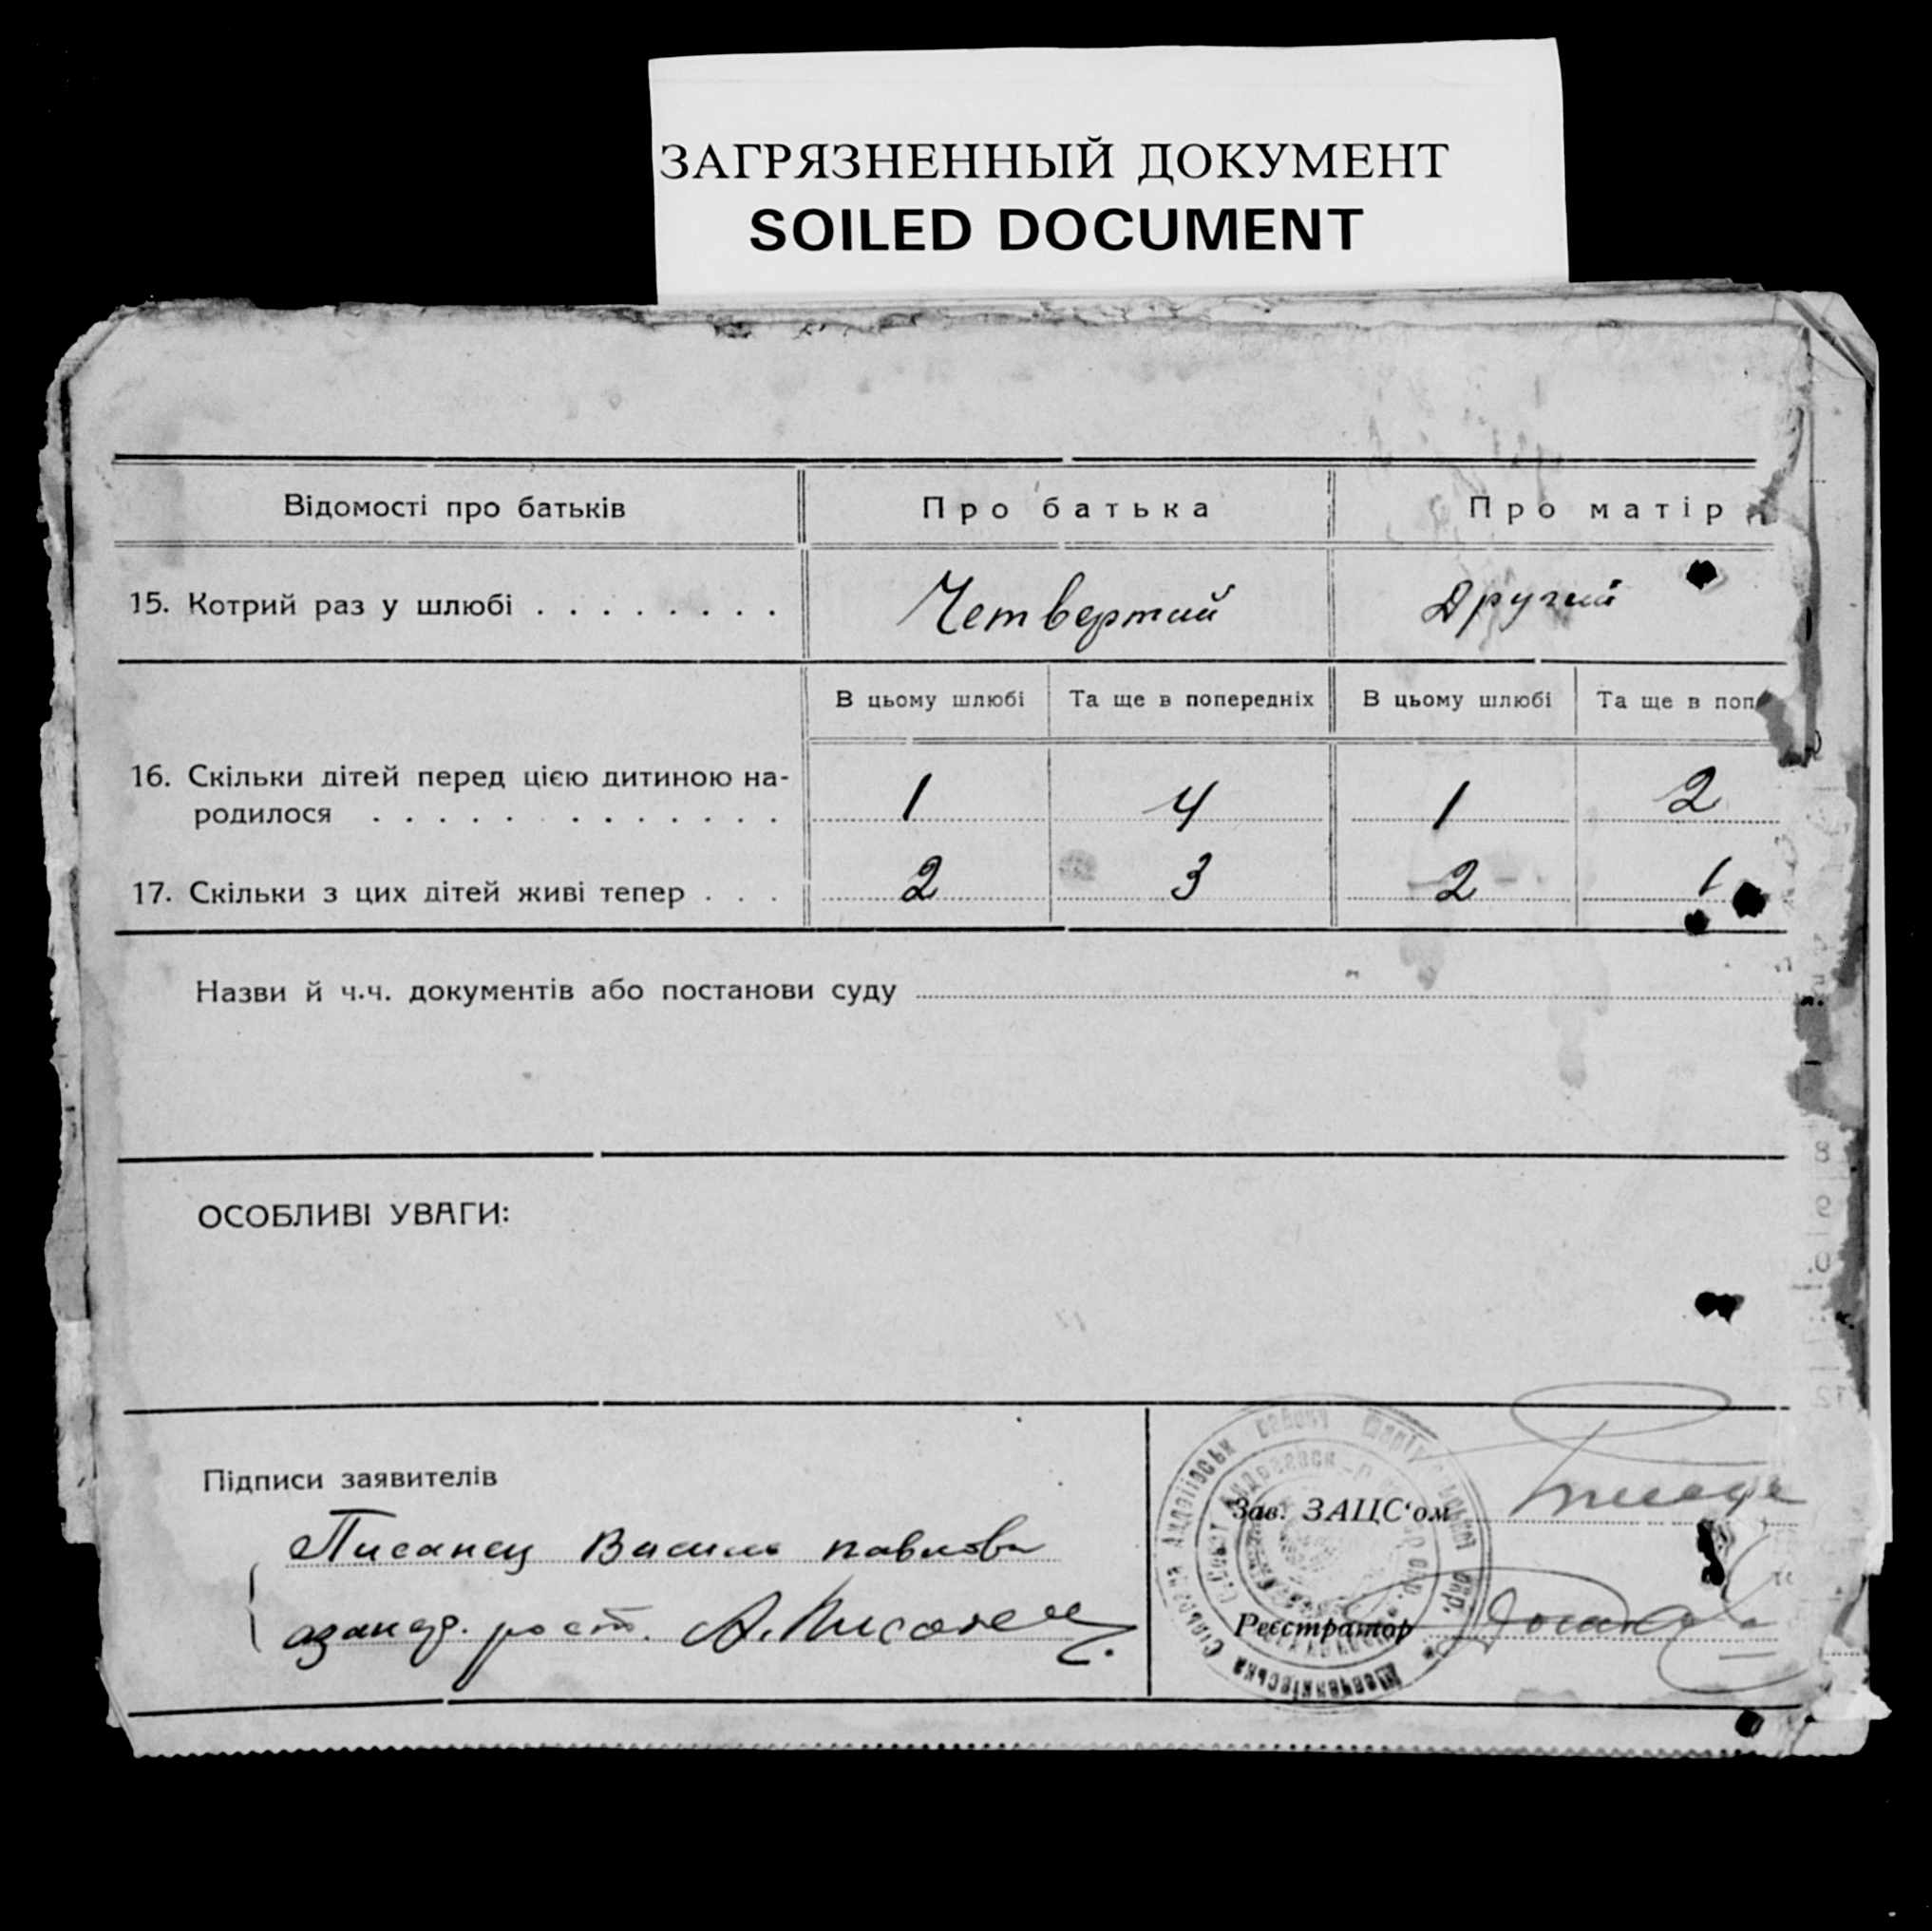 ЗАГРЯЗНЕННЫЙ ДОКУМЕНТ
SOILED DOCUMENT
Відомості про батьків
Про батька
Про матір
15. Котрий раз у шлюбі
Четвертий
Другий
В цьому шлюбі
Та ще в попередніх
В цьому шлюбі
Та ще в поп
16. Скільки дітей перед цією дитиною на-
родилося
1
4
1
2
17. Скільки з цих дітей живі тепер
2
3
2
1
Назви й ч.ч. документів або постанови суду
ОСОБЛИВІ УВАГИ:
Підписи заявителів
Писанец Василь павлов
А. Писанец
Зав. ЗАЦС‘ом
Реєстратор
Шевченківська Сільрада Андріївськ району окр.